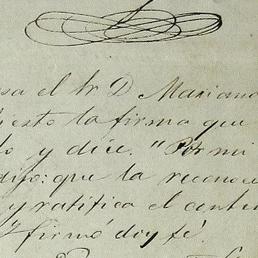 sa el Sr D Mariano
esto la firma que
o y dice "Por mi
dijo: que la reconoce
y ratifica el conten
" firmó doy fé.